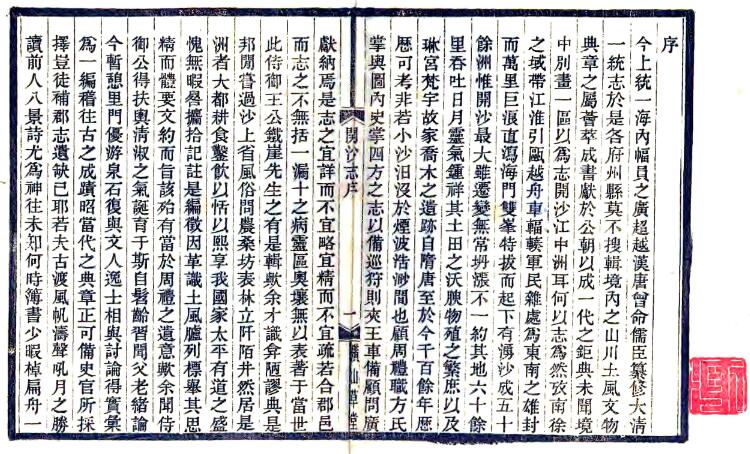 序
今上統一海內幅員之廣超越漢唐曾命儒臣纂修大清
一統志於是各府州縣莫不搜輯境內之山川土風文物
典章之屬薈萃成書獻於公朝以成一代之鉅典未聞境
中別畫一區以為志開沙江中洲耳何以志為然攷南徐
之域帶江淮引甌越舟車輻輳軍民雜處為東南之雄封
而萬里巨浪直瀉海門雙峯特拔而起下有湧沙成五十
餘洲惟開沙最大雖遷變無常坍漲不一約其地六十餘
里吞吐日月靈氣鍾祥其土田之沃腴物殖之繁庶以及
琳宮梵宇故家喬木之遺跡自隋唐至於今千百餘年歷
歷可考非若小沙汨沒於煙波浩渺間也顧周禮職方氏
掌輿圖內史掌四方之志以備巡狩則夾王車備顧問廣
開沙志序
一
橫山草堂
獻納焉是志之宜詳而不宜略宜精而不宜疏若合郡邑
而志之不無括一漏十之病靈區奧壤無以表著于當世
此侍御王公鐵崖先生之有是輯歟余才識弇陋謬典是
邦閒嘗過沙上省風俗問農桑坊表林立阡陌井然居是
洲者大都耕食鑿飲以恬以熙享我國家太平有道之盛
愧無暇晷攟拾記註是編徵因革識土風臚列標舉其思
精而體要文約而旨該殆有當於周禮之遺意歟余聞侍
御公得扶輿清淑之氣誕育于斯自髫齡習聞父老緒論
今暫憩里門優游泉石復與文人逸士相與討論得實彙
為一編稽往古之成蹟昭當代之典章正可備史官所採
擇豈徒補郡志遺缺已耶若夫古渡風帆濤聲吼月之勝
讀前人八景詩尤為神往未知何時簿書少暇棹扁舟一